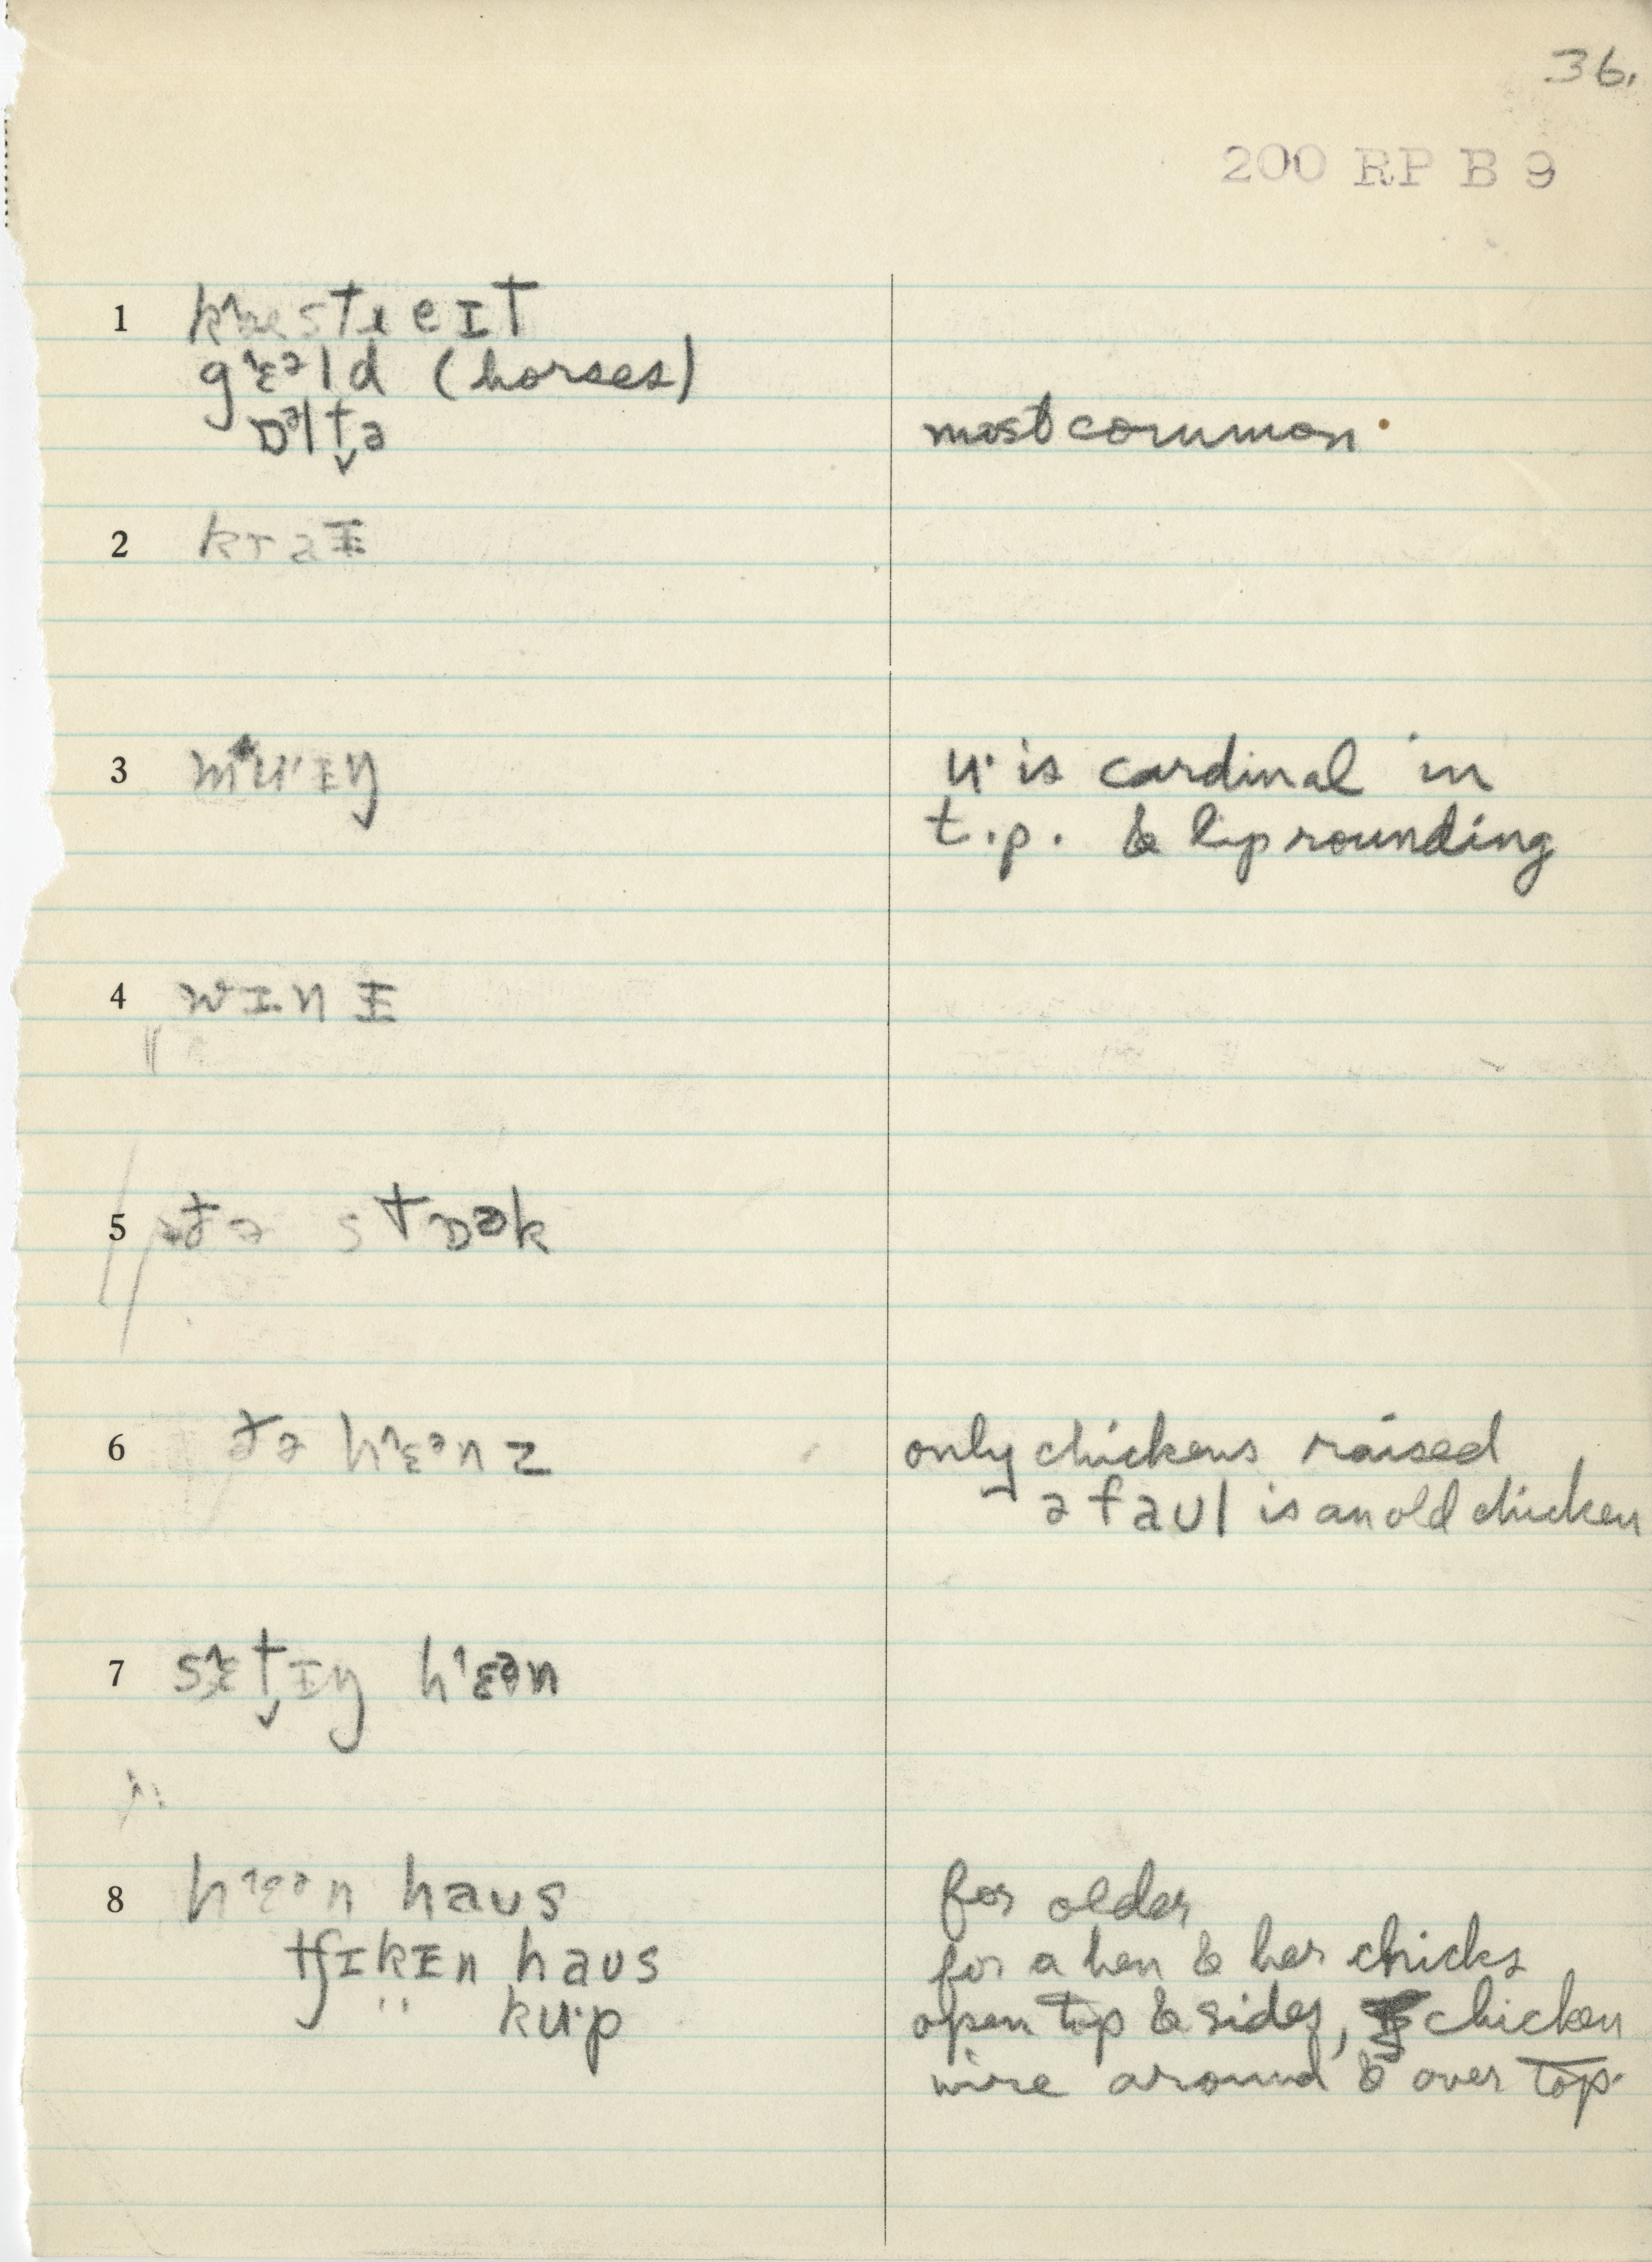 36.
200 RP B 9
1 kæstɹeɪt
gɛəld (horses)
ɒəltə most common
2 kraɪ
3 mu·ɪŋ u· is cardinal in
t.p. & lip rounding
4 wɪnɪ
5 ðə stɒək
6 ðə hɛənz only chickens raised
ə faʊl is an old chicken
7 sɛtɪŋ hɛən
8 hɛən haʊs for older
tʃɪkɪn haʊs for a hen & her chicks
ku·p open top & sides, chicken
wire around & over top.